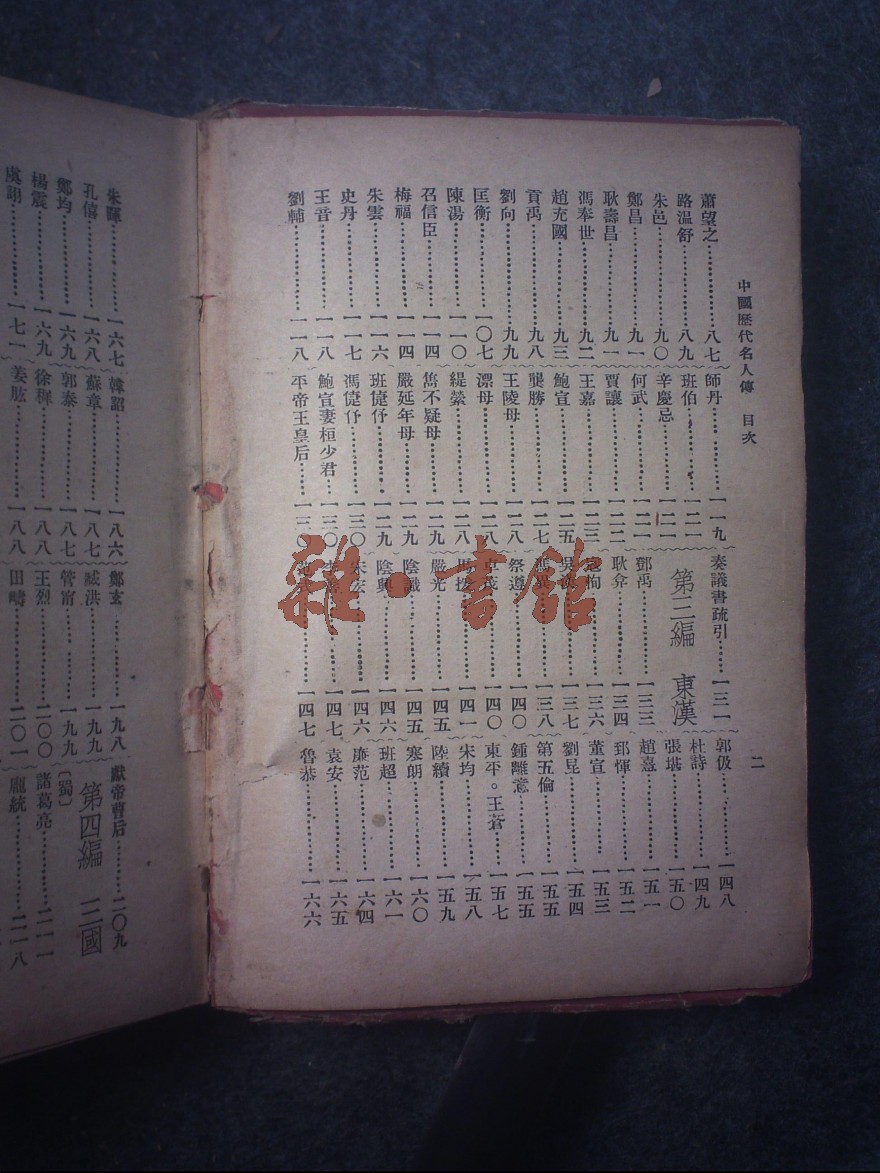 中國歷代名人傳 目次
二
蕭望之……八七
路溫舒……八九
朱邑……九〇
鄭昌……九一
耿壽昌……九一
馮奉世……九二
趙充國……九三
貢禹……九八
劉向……九九
匡衡……一〇七
陳湯……一一〇
召信臣……一一四
梅福……一一四
朱雲……一一六
史丹……一一七
王音……一一八
劉輔……一一八
師丹……一一九
班伯……一二一
辛慶忌……一二一
何武……一二一
賈讓……一二二
王嘉……一二三
鮑宣……一二五
龔勝……一二七
王陵母……一二八
漂母……一二八
緹縈……一二八
雋不疑母……一二九
嚴延年母……一二九
班倢伃……一二九
馮倢伃……一三〇
鮑宣妻桓少君……一三〇
平帝王皇后……一三〇
奏議書疏引……一三一
第三編 東漢
鄧禹……一三三
耿弇……一三四
恂……一三六
吳……一三七
一三八
祭遵……一四〇
卓茂……一四〇
一四一
嚴光……一四五
陰識……一四五
陰興……一四六
宋宏……一四六
一四七
一四七
郭伋……一四八
杜詩……一四九
張堪……一五〇
趙憙……一五一
郅惲……一五二
董宣……一五三
劉昆……一五四
第五倫……一五五
鍾離意……一五五
東平。王蒼……一五七
宋均……一五八
陸續……一五九
寒朗……一六〇
班超……一六一
廉范……一六四
袁安……一六五
魯恭……一六六
雜·書館
朱暉……一六七
孔僖……一六八
鄭均……一六九
楊震……一六九
虞詡……一七一
韓韶……一八六
蘇章……一八七
郭泰……一八七
徐穉……一八八
姜肱……一八八
鄭玄……一九八
臧洪……一九九
管甯……一九九
王烈……二〇〇
田疇……二〇一
獻帝曹后……二〇九
第四編 三國
〔蜀〕
諸葛亮……二一一
龐統……二一八